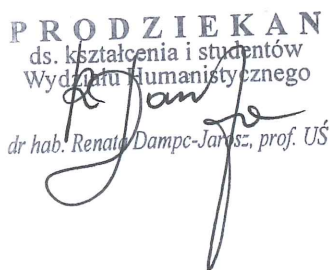 PRODZIEKAN
ds. kształcenia i studentów
Wydziału Humanistycznego
dr hab. Renata Dampc-Jarosz, prof. UŚ